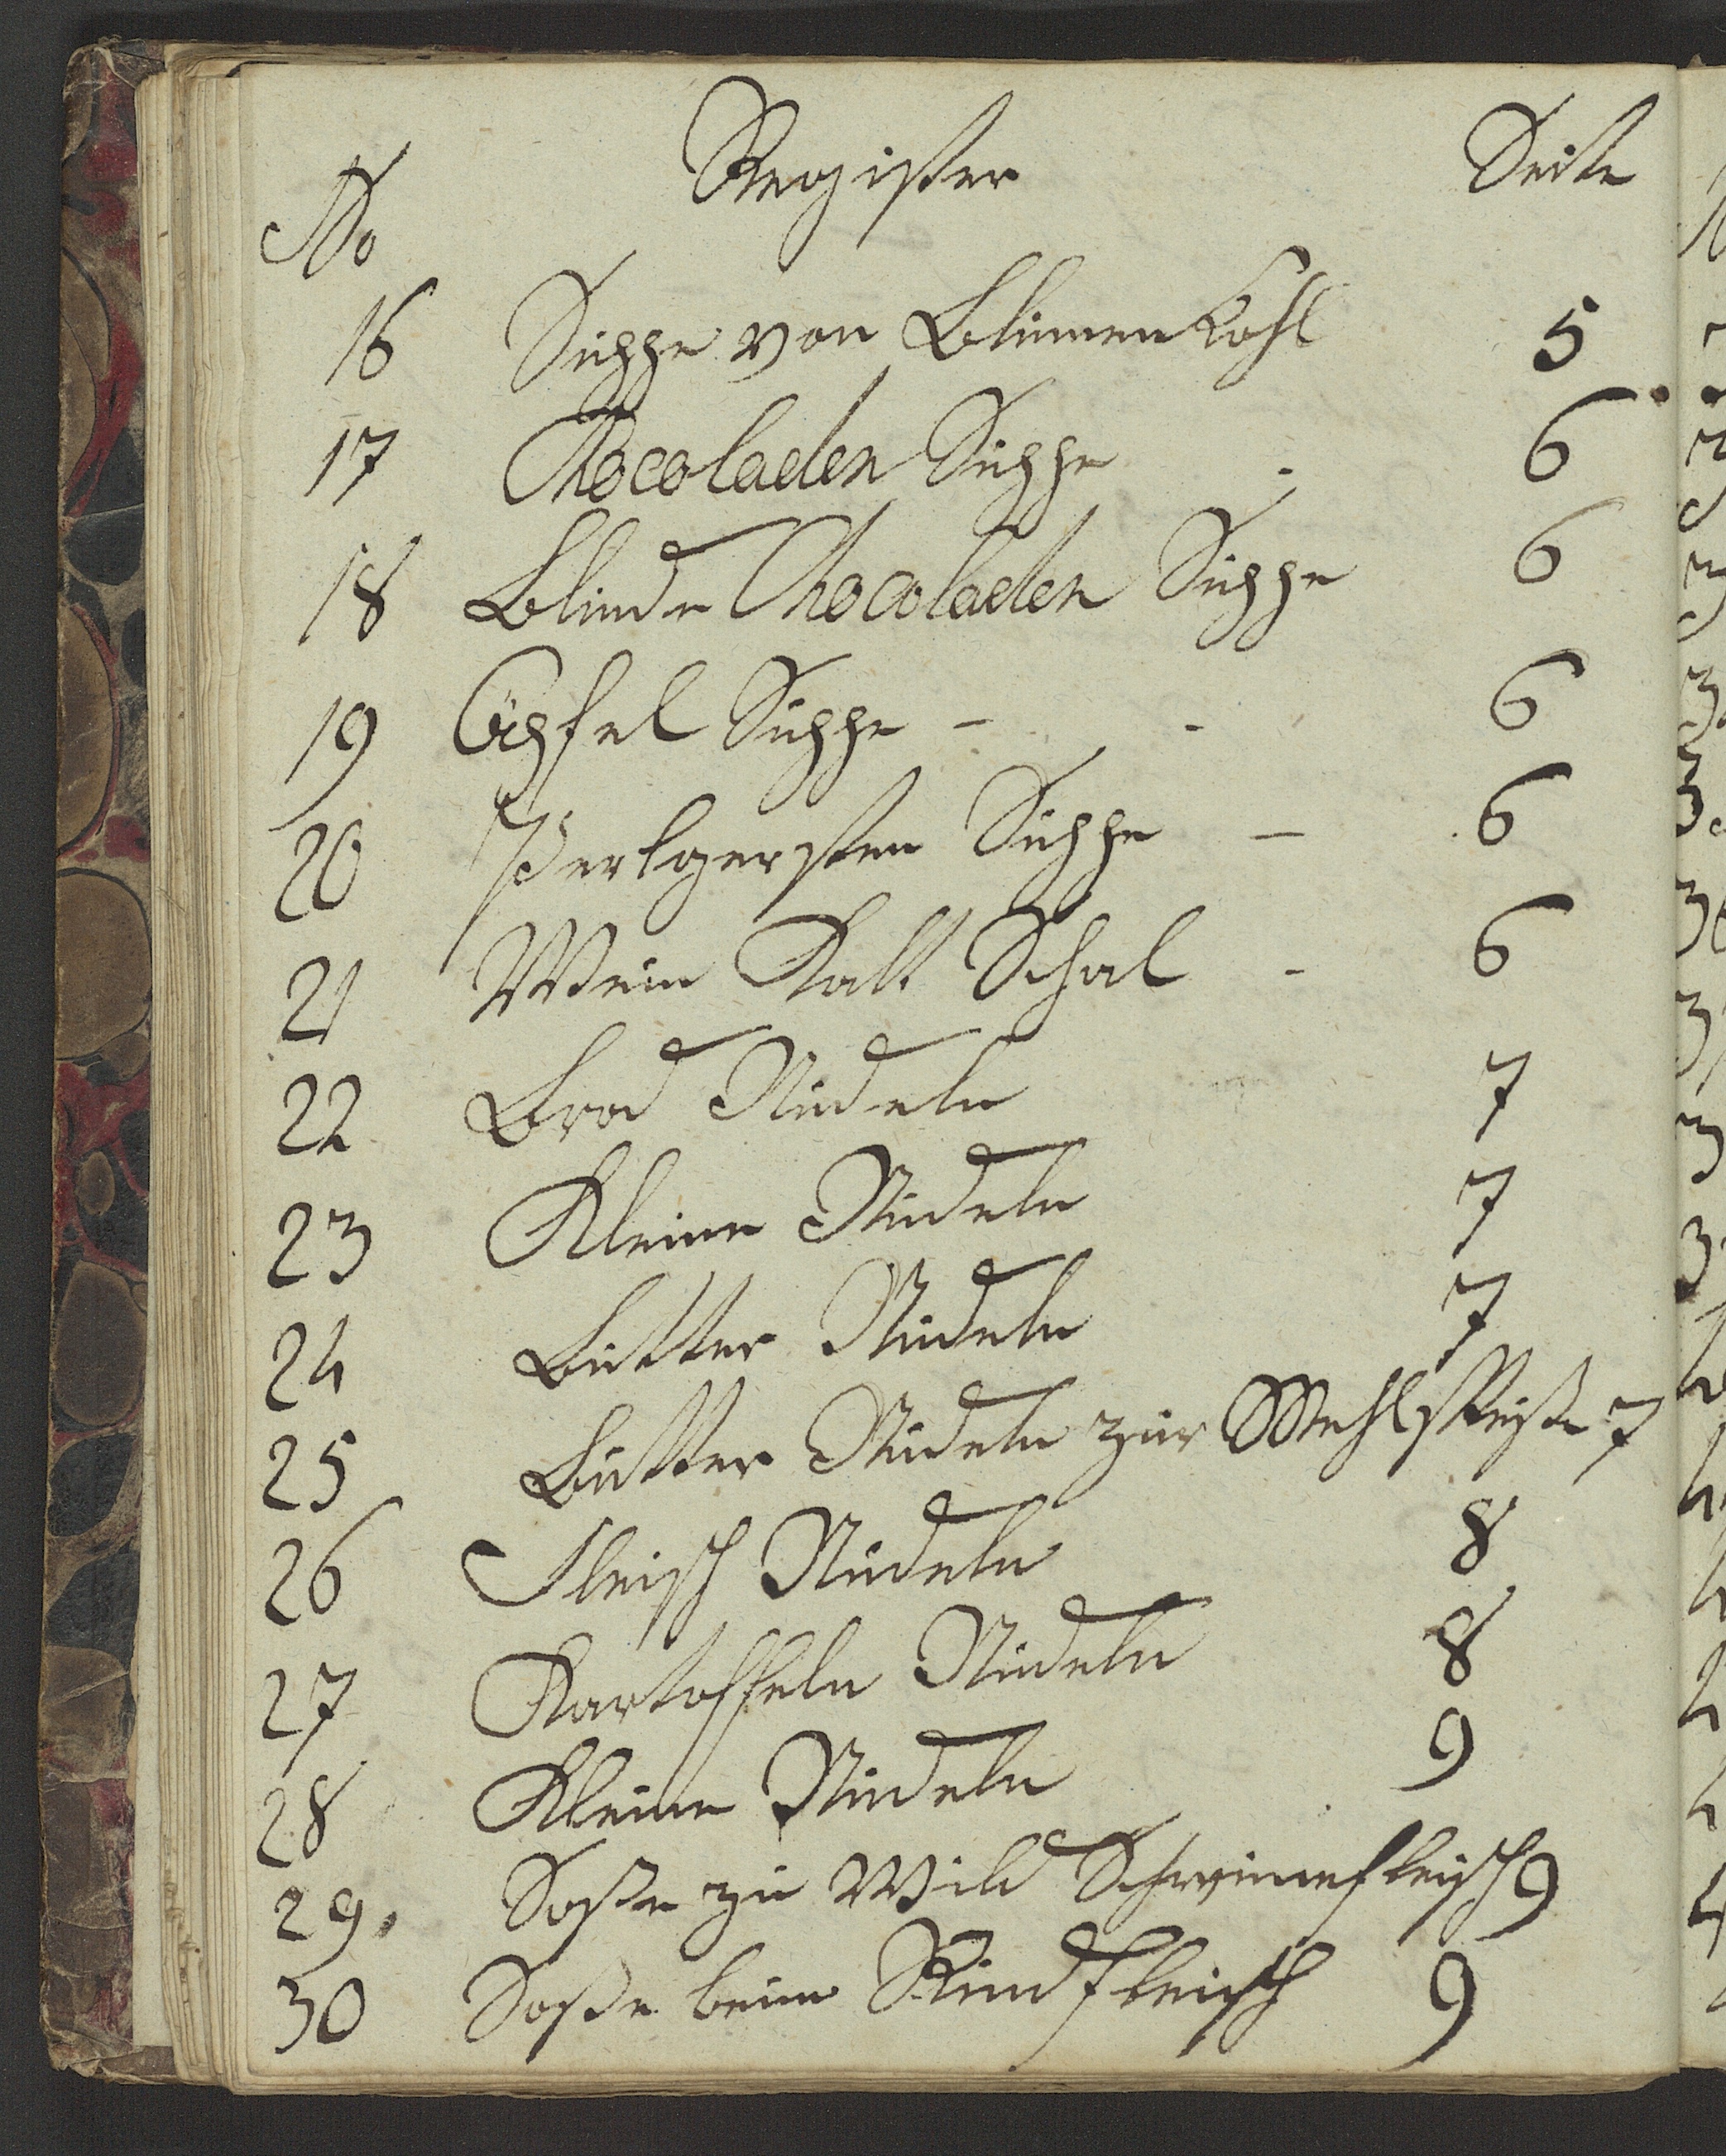 No Register Seite
16 Suppe von Blumenkohl 5
17 Chocoladen Suppe - 6
18 Blinde Chocoladen Suppe 6
19 Äpfel Suppe - - 6
20 Perlgersten Suppe - 6
21 Wein Kalt Schal - 6
22 Brod Nudeln 7
23 Kleine Nudeln 7
24 Butter Nudeln 7
25 Butter Nudeln zur Mehlspeise 7
26 Fleisch Nudeln 8
27 Kartoffeln Nudeln 8
28 Kleine Nudeln 9
29. Soße zu Wild Schweinefleisch 9
30 Soße beim Rindfleisch 9